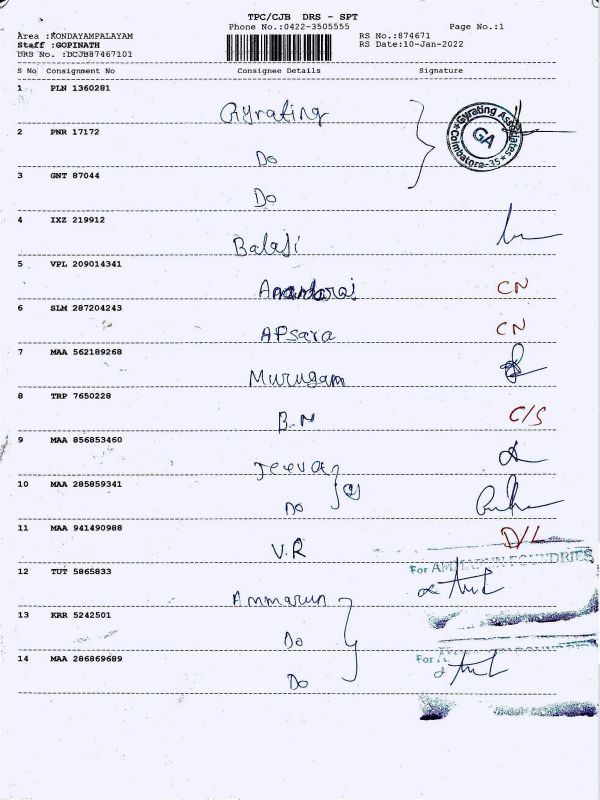 TPC/CJB DRS - SPT
Phone No.:0422-3505555 Page No.:1
Area :KONDAYAMPALAYAM
Staff :GOPINATH
DRS No. :DCJB87467101
RS No.:874671
RS Date:10-Jan-2022
S No Consignment No Consignee Details Signature
1 PLN 1360281 Gyrating
Gyrating Associates Coimbatore-35 GA
2 PNR 17172 Do
3 GNT 87044 Do
4 IXZ 219912 Balaji
5 VPL 209014341 Anandaraj CN
6 SLM 287204243 APsara CN
7 MAA 562189268 Murugam
8 TRP 7650228 B.N C/S
9 MAA 856853460 Jeeva
10 MAA 285859341 Do
11 MAA 941490988 V.R D/L
12 TUT 5865833 Ammarun
For AMMARUN FOUNDRIES
13 KRR 5242501 Do
14 MAA 286869689 Do
For